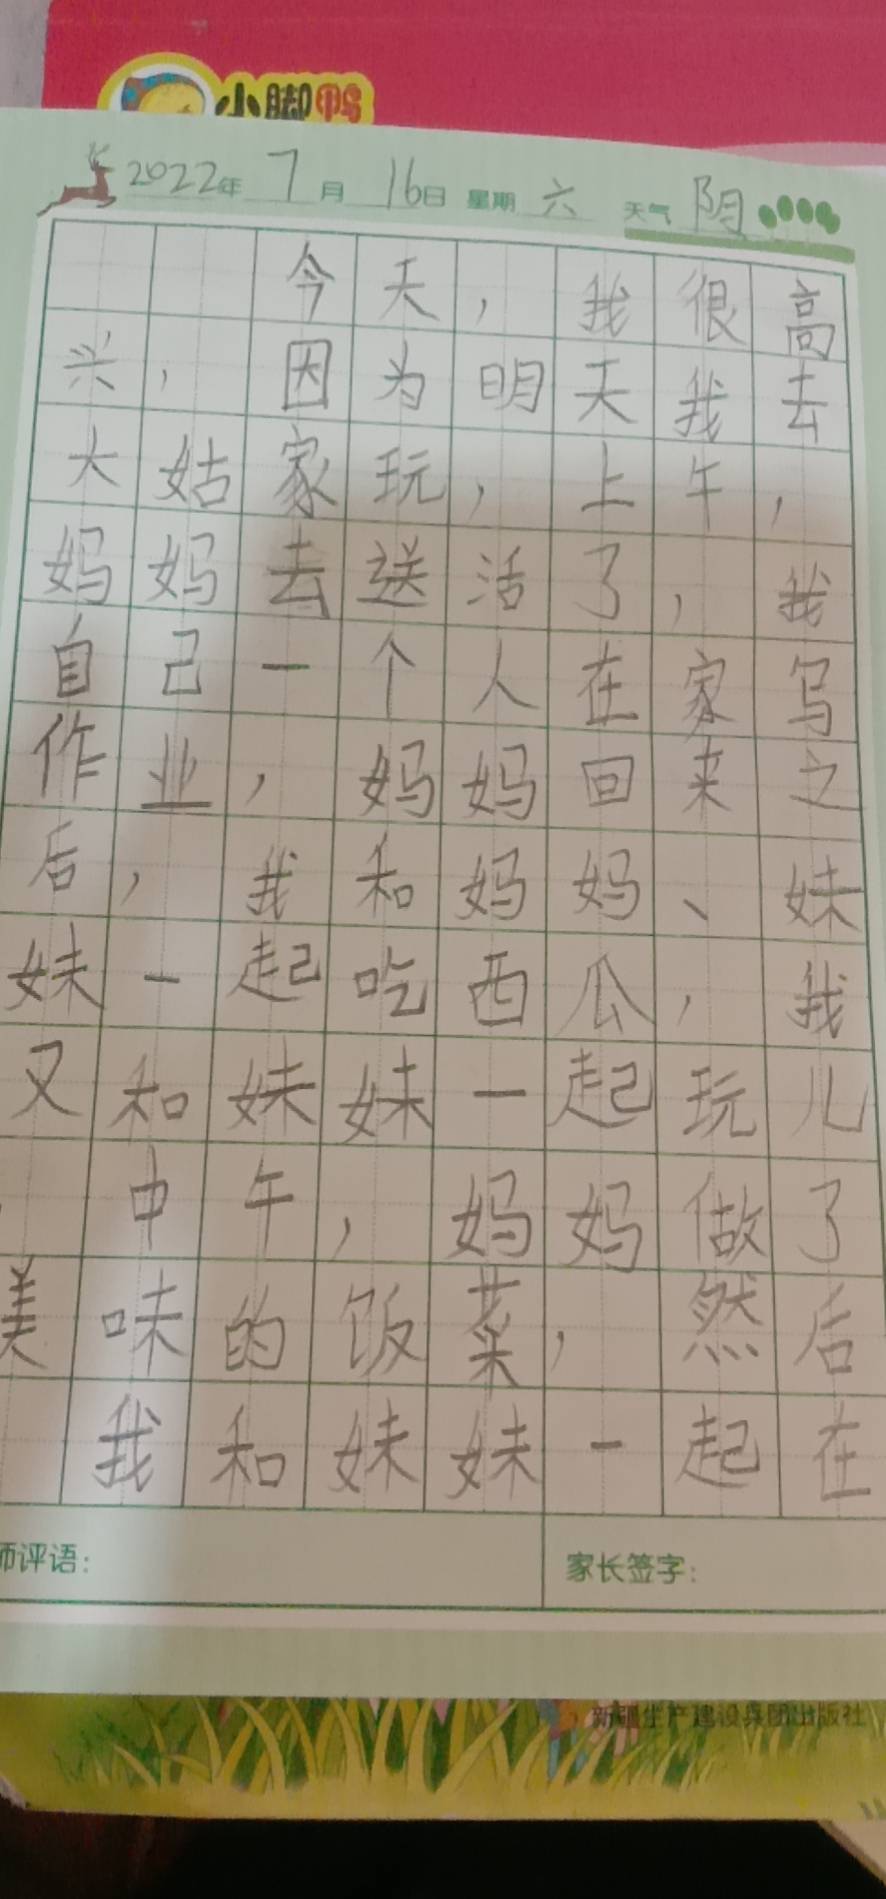 小脚鸭
2022年 7月 16日 星期 六 天气 阴
今天，我很高
兴，因为明天我去
大姑家玩，上午，
妈妈去送活了，我
自己一个人在家写
作业，妈妈回来之
后，我和妈妈、妹
妹一起吃西瓜，我
又和妹妹一起玩儿
，中午，妈妈做了
美味的饭菜，然后
我和妹妹一起在
师评语： 家长签字：
新疆生产建设兵团出版社